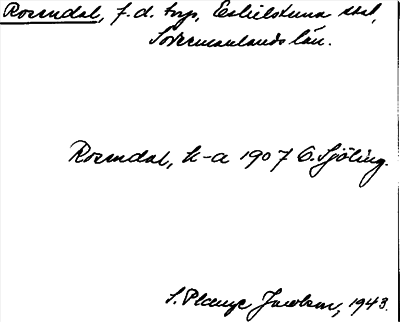 Rosendal, f.d. torp, Eskilstuna stad,
Södermanlands län.
Rosendal, k-a 1907 O. Sjöling.
S. Plange Jacobson, 1943.